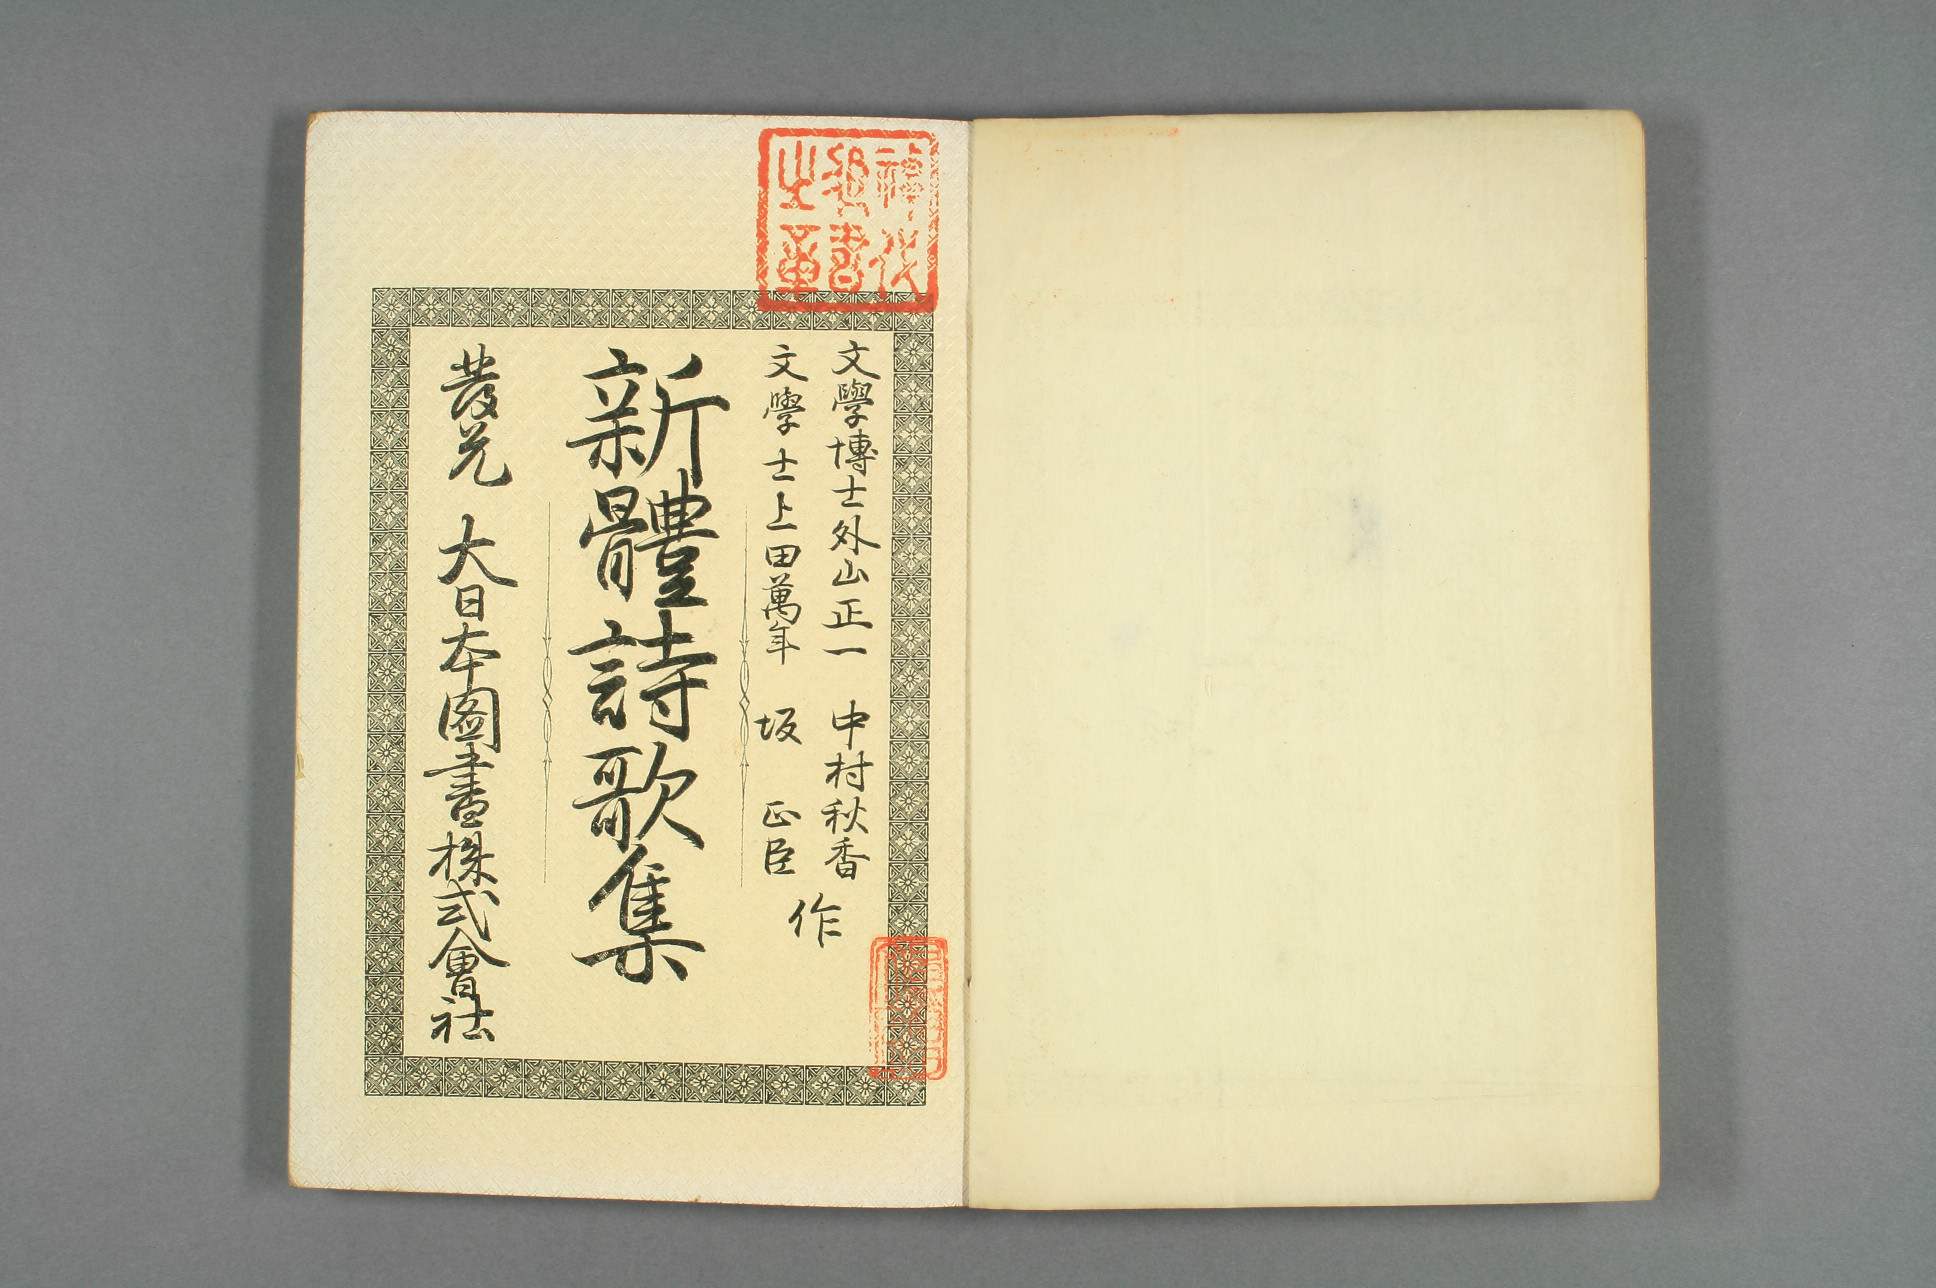 文學博士外山正一　中村秋香
文學士上田萬年　坂　正臣
作
新體詩歌集
發兌　大日本圖書株式會社